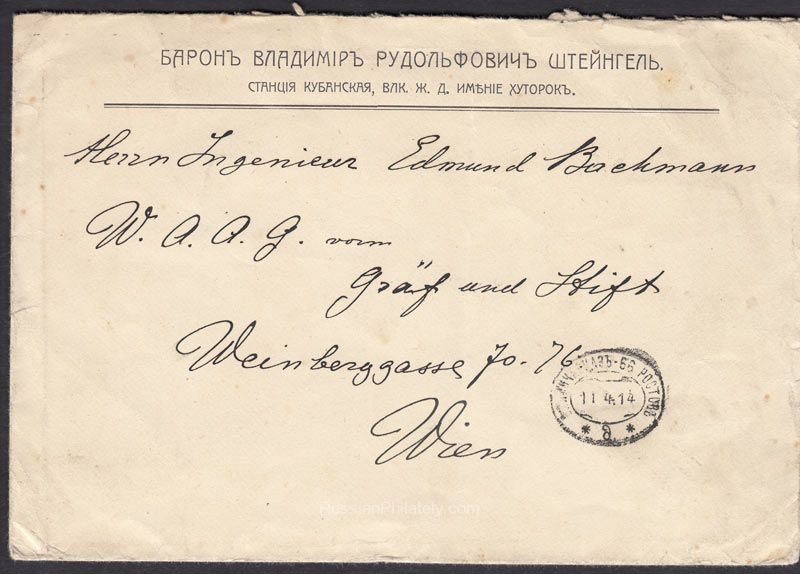 БАРОНЪ ВЛАДИМІРЪ РУДОЛЬФОВИЧЪ ШТЕЙНГЕЛЬ.
СТАНЦІЯ КУБАНСКАЯ, ВЛК. Ж. Д. ИМѢНІЕ ХУТОРОКЪ.
Herrn Ingenieur Edmund Bachmann
W. A. A. G. vorm
Gräf und Stift
Weinberggasse 70-76
Wien
66 РОСТОВЪ
11 4.14
* д *
RussianPhilately.com